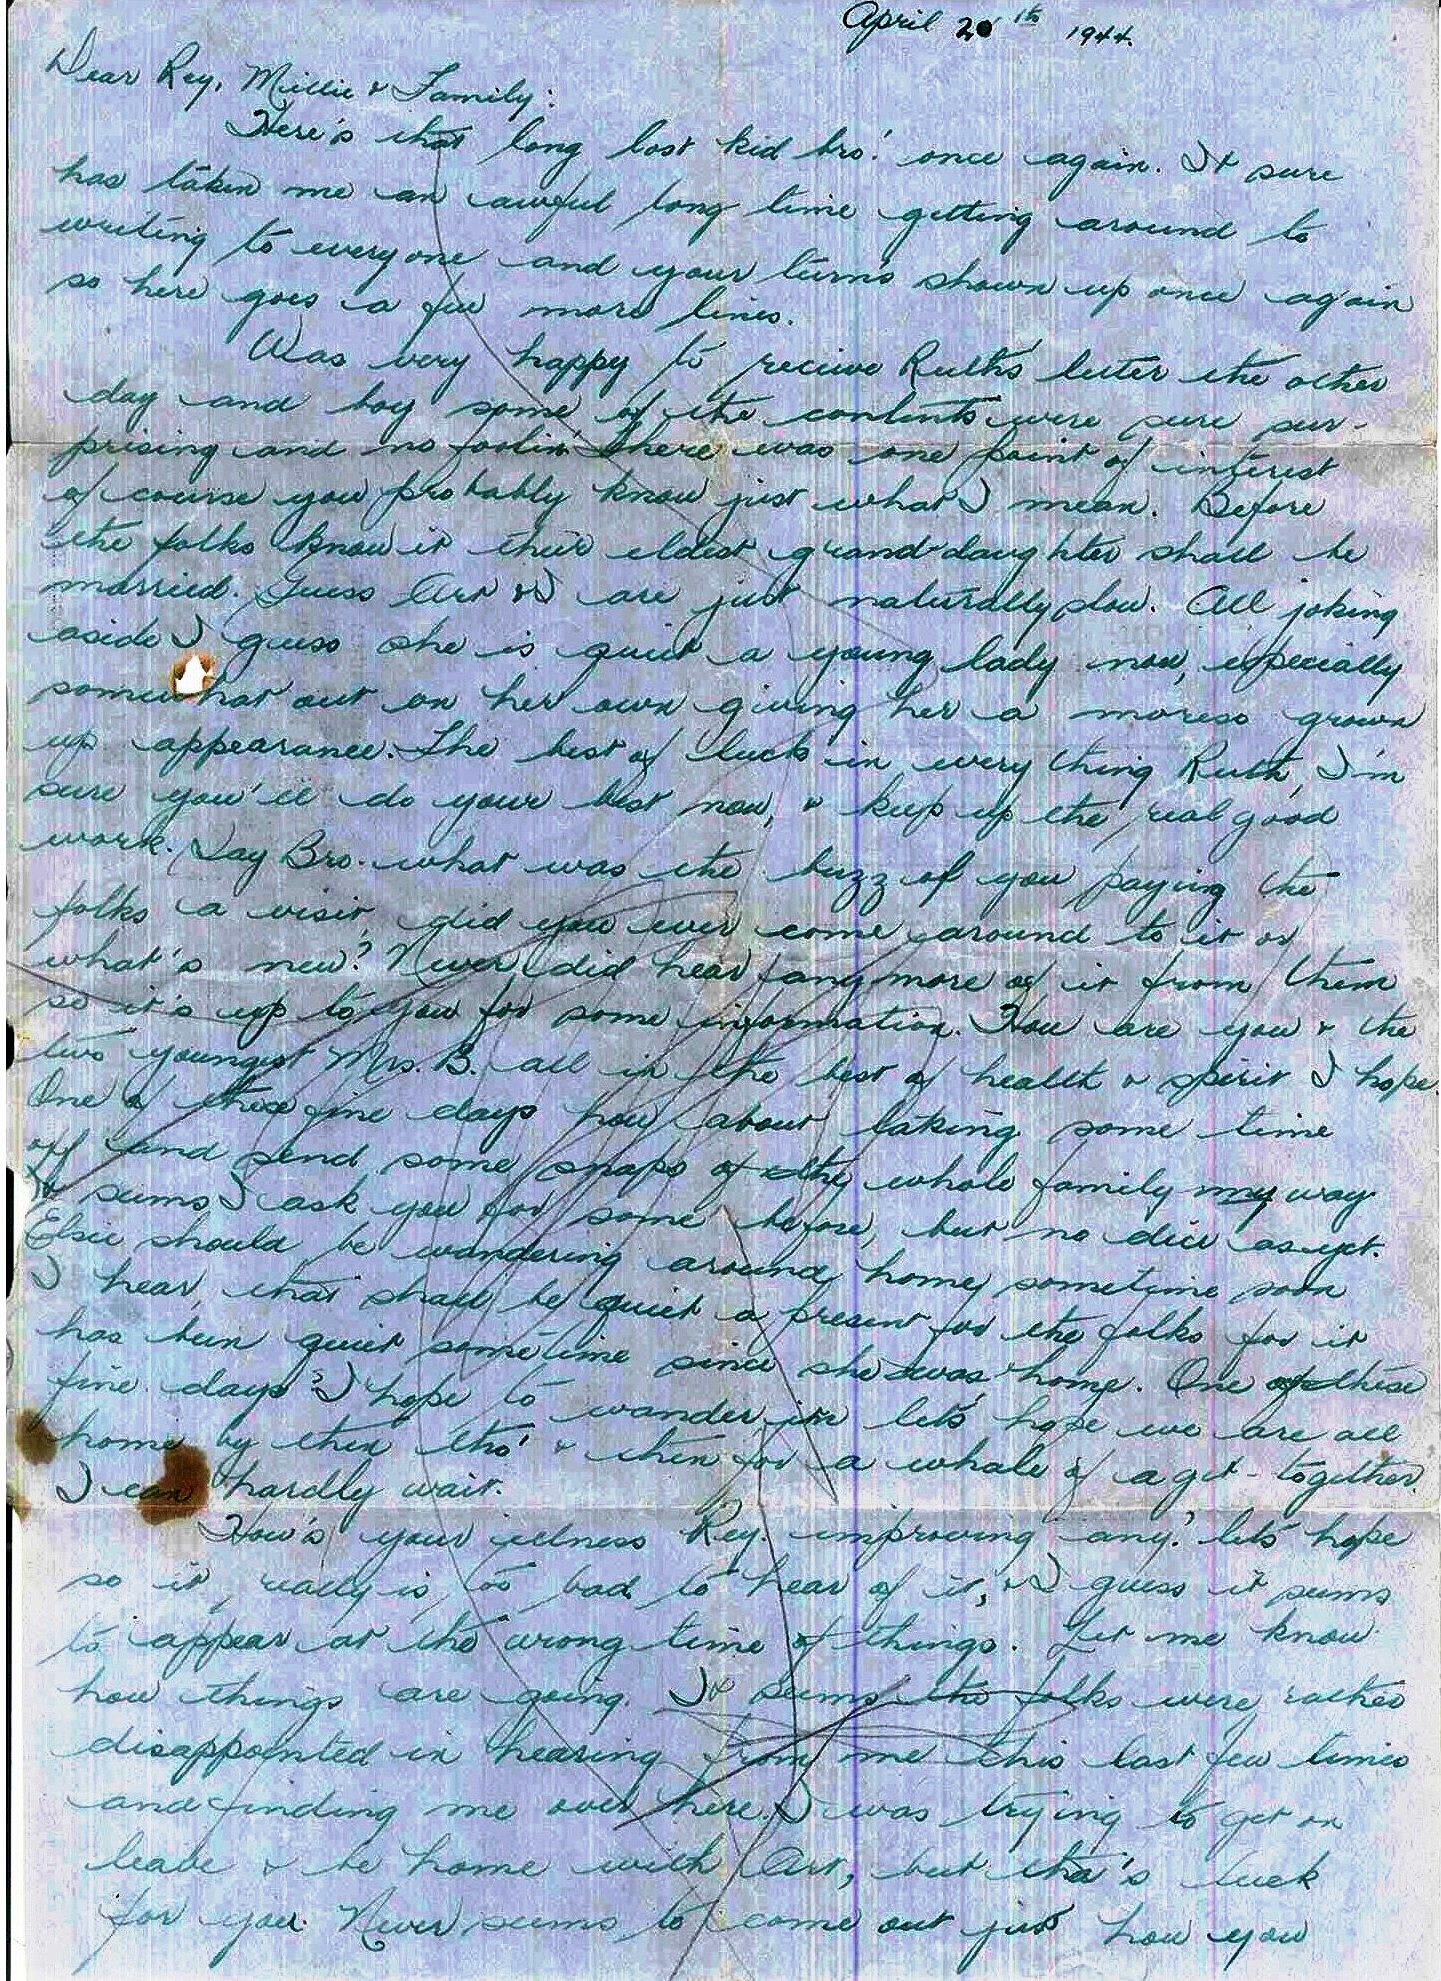 April 20th 1944.
Dear Rey, Millie & Family:
Here's that long lost kid bro! once again. It sure
has taken me an awful long time getting around to
writing to everyone and your turns shown up once again
so here goes a few more lines.
Was very happy to recieve Ruth's letter the other
day and boy some of the contents were sure sur-
prising and no foolin! there was one point of interest
of course you probably know just what I mean. Before
the folks know it their eldest grand-daughter shall be
married. Guess Art & I are just naturally slow. All joking
aside I guess she is quiet a young lady now, especially
somewhat out on her own giving her a moreso grown
up appearance. The best of luck in every thing Ruth, I'm
sure you'll do your best now, & keep up the real good
work. Say Bro. what was the buzz of you paying the
folks a visit, did you ever come around to it or
what's new? Never did hear any more of it from them
so it's up to you for some information. How are you & the
two youngest Mrs. B. all in the best of health & spirit I hope.
One of these fine days how about taking some time
off and send some snaps of the whole family my way
It seems I ask you for some before, but no dice as yet.
Elsie should be wandering around home sometime soon
I hear, that shall be quiet a present for the folks for it
has been quiet sometime since she was home. One of these
fine days I hope to wander in lets hope we are all
home by then tho' & then for a whale of a get-together.
I can hardly wait.
How's your illness Rey. improving any? lets hope
so it really is too bad to hear of it, & I guess it seems
to appear at the wrong time of things. Let me know
how things are going. It seems the folks were rather
disappointed in hearing from me this last few times
and finding me over here. I was trying to get on
leave & be home with Art, but tha's luck
for you. Never seems to come out just how you